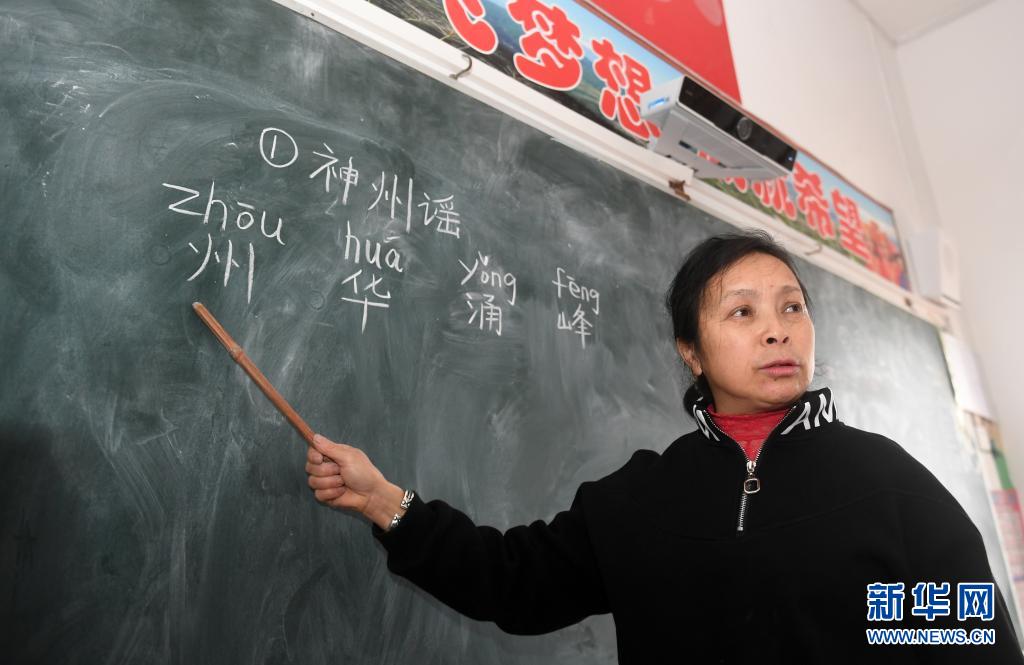 梦想
希望
①神州谣
zhōu huā yǒng fēng
州 华 涌 峰
新华网
WWW.NEWS.CN